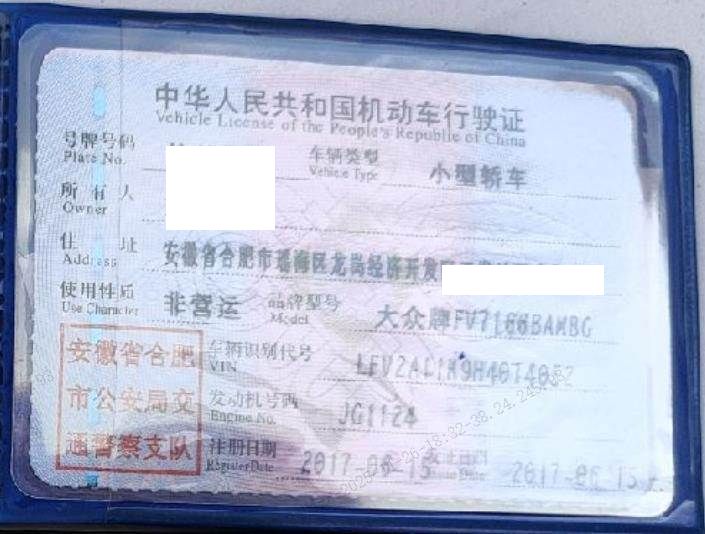 中华人民共和国机动车行驶证
Vehicle License of the People's Republic of China
号牌号码 车辆类型 小型轿车
Plate No. Vehicle Type
所有人
Owner
住址 安徽省合肥市瑶海区龙岗经济开发
Address
使用性质 非营运 品牌型号 大众牌FV7166BAMBG
Use Character Model
安徽省合肥 车辆识别代号
VIN
市公安局交 发动机号码 JG1124
Engine No.
通警察支队 注册日期 2017-06-15 发证日期 2017-06-15
Register Date